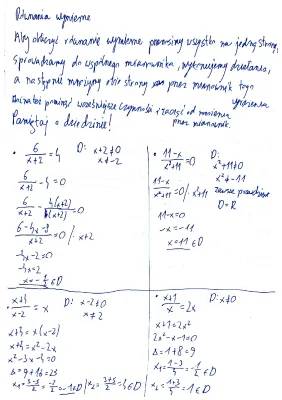 Równania wymierne
Aby obliczyć równanie wymierne przenosimy wszystko na jedną stronę,
sprowadzamy do wspólnego mianownika, wykonujemy działania,
a następnie mnożymy obie strony przez mianownik tego
wyrażenia
pominąć wcześniejsze czynności i zacząć od mnożenia
przez mianownik.
Pamiętaj o dziedzinie!
6/(x+2) = 4 D: x+2≠0
x≠-2
6/(x+2) - 4 = 0
6/(x+2) - 4(x+2)/(x+2) = 0
(6-4x-8)/(x+2) = 0 /· x+2
-4x-2=0
-4x=2
x=-1/2 ∈D
(11-x)/(x²+11) = 0 D:
x²+11≠0
x²≠-11
zawsze prawdziwe
D=R
(11-x)/(x²+11) = 0 /· x²+11
11-x=0
-x=-11
x=11∈D
(x+4)/(x-2) = x D: x-2≠0
x≠2
x+4=x(x-2)
x+4=x²-2x
x²-3x-4=0
Δ=9+16=25
x₁=(3-5)/2=-2/2=-1∈D x₂=(3+5)/2=4∈D
(x+1)/x = 2x D: x≠0
x+1=2x²
2x²-x-1=0
Δ=1+8=9
x₁=(1-3)/4=-1/2∈D
x₂=(1+3)/4=1∈D